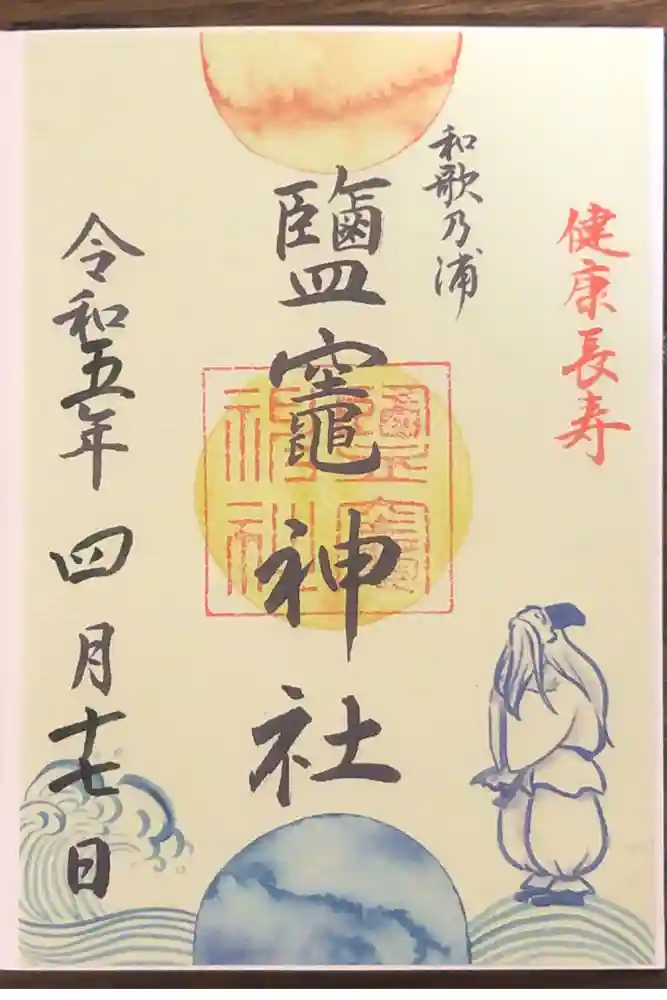 健康長寿
和歌乃浦
鹽竈神社
令和五年四月十七日
鹽竈
神社